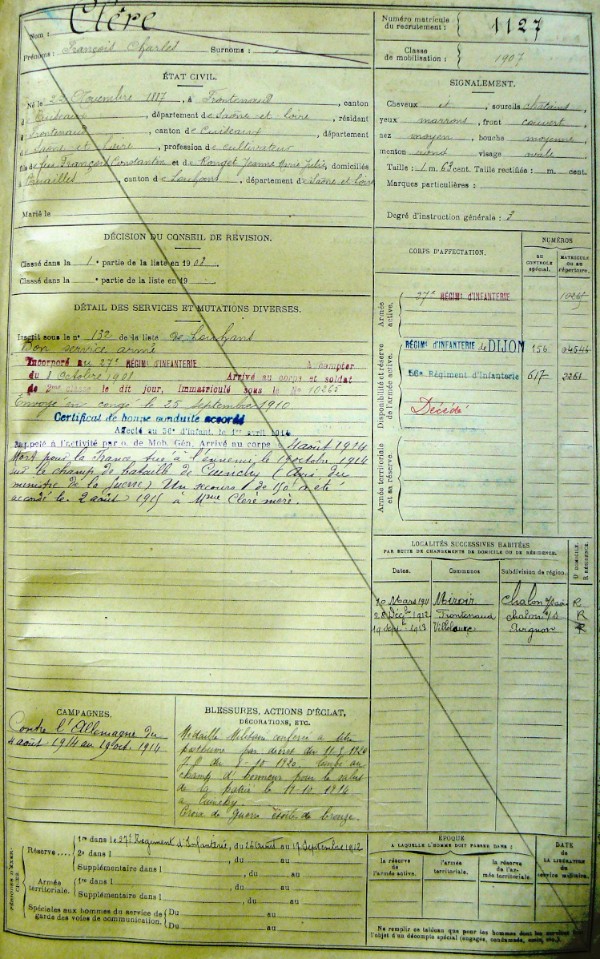 Nom : Clère
Prénoms : François Charles Surnoms :
Numéro matricule du recrutement : 1127
Classe de mobilisation : 1907
ÉTAT CIVIL.
Né le 22 Novembre 1887, à Frontenaud, canton
de Cuiseaux, département de Saône et Loire, résidant
à Frontenaud, canton de Cuiseaux, département
de Saône et Loire, profession de Cultivateur
fils de feu François Constantin et de Rouget Jeanne Marie Julie, domiciliés
à canton de Louhans, département de Saône et Loire
Marié le
SIGNALEMENT.
Cheveux et sourcils châtains
yeux marrons, front couvert
nez moyen, bouche moyenne
menton rond visage ovale
Taille : 1 m. 62 cent. Taille rectifiée : m. cent.
Marques particulières :
Degré d'instruction générale : 3
DÉCISION DU CONSEIL DE RÉVISION.
Classé dans la 1e partie de la liste en 1908
Classé dans la e partie de la liste en 19
DÉTAIL DES SERVICES ET MUTATIONS DIVERSES.
Inscrit sous le n° 132 de la liste de Louhans
Bon service armé
Incorporé au 27e RÉGIMENT D'INFANTERIE à compter
du Octobre Arrivé au corps et soldat
de 2e le dit jour, immatriculé sous le No 10265
Envoyé en congé le 25 septembre 1910
Certificat de bonne conduite accordé
Affecté au 56e d'Infant. le 1er avril 1914
Rappelé à l'activité par o. de Mob. Gén. Arrivé au corps 4 août 1914
Mort pour la France, tué à l'ennemi le octobre 1914
sur le champ de bataille de Cuinchy (Avis du
ministre de la guerre) Un secours de 150f a été
accordé le 2 août 1915 à Mme Clère mère.
CORPS D'AFFECTATION.
NUMÉROS
AU CONTROLE spécial.
MATRICULE OU AU répertoire.
Armée active.
27e RÉGIMENT D'INFANTERIE 10265
Disponibilité et réserve de l'armée active.
RÉGIMENT D'INFANTERIE de DIJON 156 04544
56e Régiment d'Infanterie 617 2261
Décédé
Armée territoriale et sa réserve.
LOCALITÉS SUCCESSIVES HABITÉES
PAR SUITE DE CHANGEMENTS DE DOMICILE OU DE RÉSIDENCE.
Dates. Communes Subdivision de région. D. DOMICILE. R. RÉSIDENCE.
10 Mars 1911 Miroir Chalon s/Saône R
Déc. 1912 Frontenaud Chalon s/S R
1913 Avignon R
CAMPAGNES.
Contre l'Allemagne du
4 août 1914 au oct. 1914
BLESSURES, ACTIONS D'ÉCLAT,
DÉCORATIONS, ETC.
Médaille Militaire conférée à titre
posthume par décret du
J.O. du 1920 tombé au
champ d'honneur pour le salut
de la patrie le 10 1914
à Cuinchy
Croix de guerre étoile de bronze.
PÉRIODES D'EXERCICES
Réserve
1re dans le 27e Régiment d'Infanterie, du 26 août au 17 Septembre 1912
2e dans l , du au
Supplémentaire dans l , du au
Armée territoriale.
1re dans l , du au
Supplémentaire dans l , du au
Spéciales aux hommes du service de garde des voies de communication.
Du au
Du au
ÉPOQUE
A LAQUELLE L'HOMME DOIT PASSER DANS :
la réserve de l'armée active.
l'armée territoriale.
la réserve de l'armée territoriale.
DATE
DE LA LIBÉRATION du service militaire.
Ne remplir ce tableau que pour les hommes dont les services
l'objet d'un décompte spécial (engagés, condamnés, omis, etc.).